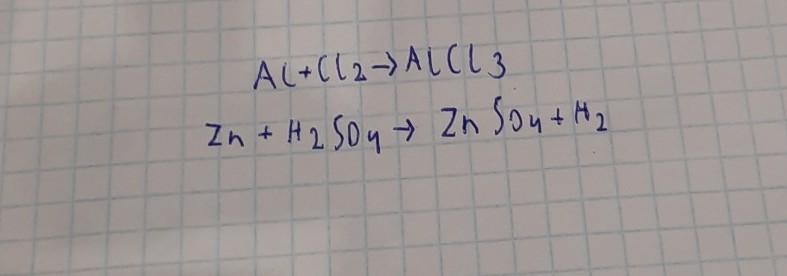 Al+Cl2→AlCl3
Zn + H2SO4 → ZnSO4+H2